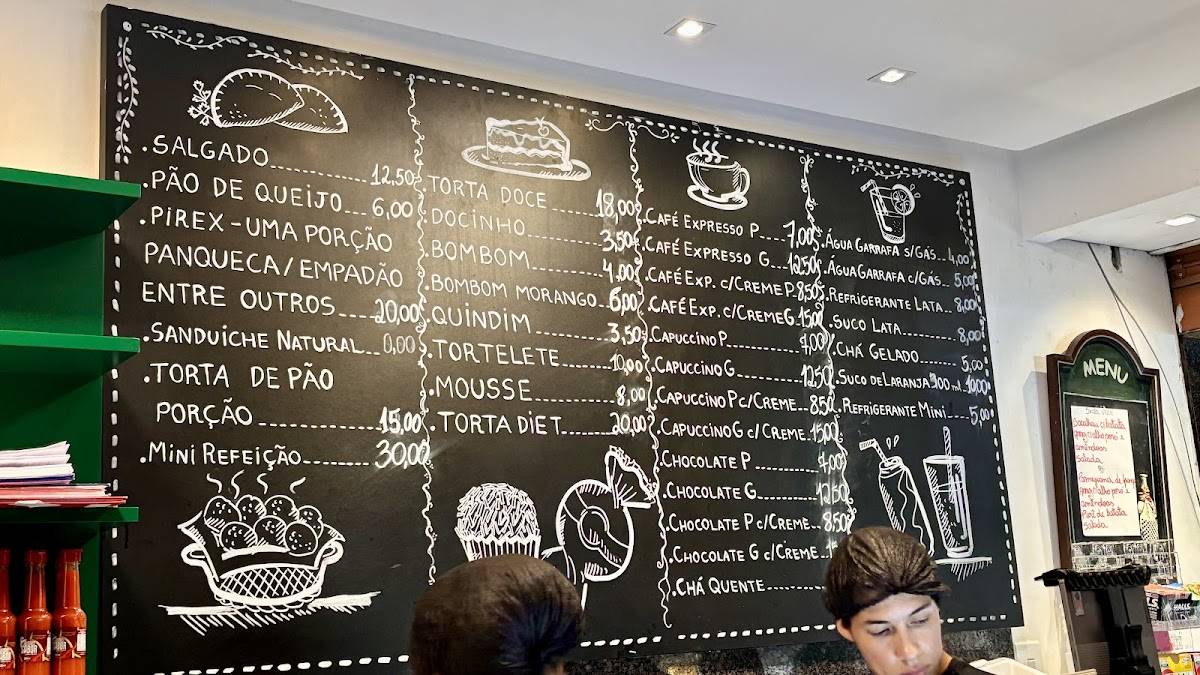 .SALGADO 12,50
.PÃO DE QUEIJO 6,00
.PIREX - UMA PORÇÃO
PANQUECA / EMPADÃO
ENTRE OUTROS 20,00
.SANDUÍCHE NATURAL 0,00
.TORTA DE PÃO
PORÇÃO 15,00
.MINI REFEIÇÃO 30,00
.TORTA DOCE 18,00
.DOCINHO 3,50
.BOMBOM 4,00
.BOMBOM MORANGO 6,00
.QUINDIM 3,50
.TORTELETE 10,00
.MOUSSE 8,00
.TORTA DIET 20,00
.CAFÉ EXPRESSO P 7,00
.CAFÉ EXPRESSO G 12,50
.CAFÉ EXP. C/CREME P 8,50
.CAFÉ EXP. C/CREME G 15,00
.CAPUCCINO P 7,00
.CAPUCCINO G 12,50
.CAPUCCINO P C/CREME 8,50
.CAPUCCINO G C/CREME 15,00
.CHOCOLATE P 7,00
.CHOCOLATE G 12,50
.CHOCOLATE P C/CREME 8,50
.CHOCOLATE G C/CREME
.CHÁ QUENTE
.ÁGUA GARRAFA S/GÁS 4,00
.ÁGUA GARRAFA C/GÁS 5,00
.REFRIGERANTE LATA 8,00
.SUCO LATA 8,00
.CHÁ GELADO 5,00
.SUCO DE LARANJA 300 ml 10,00
.REFRIGERANTE MINI 5,00
MENU
Bacalhau c/batata
amêndoas
salada
amêndoas
salada
HALLS